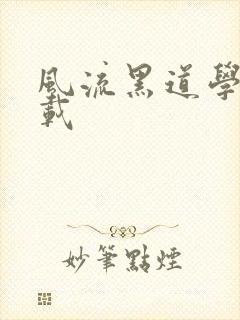 風流黑道學
載
妙筆點煙